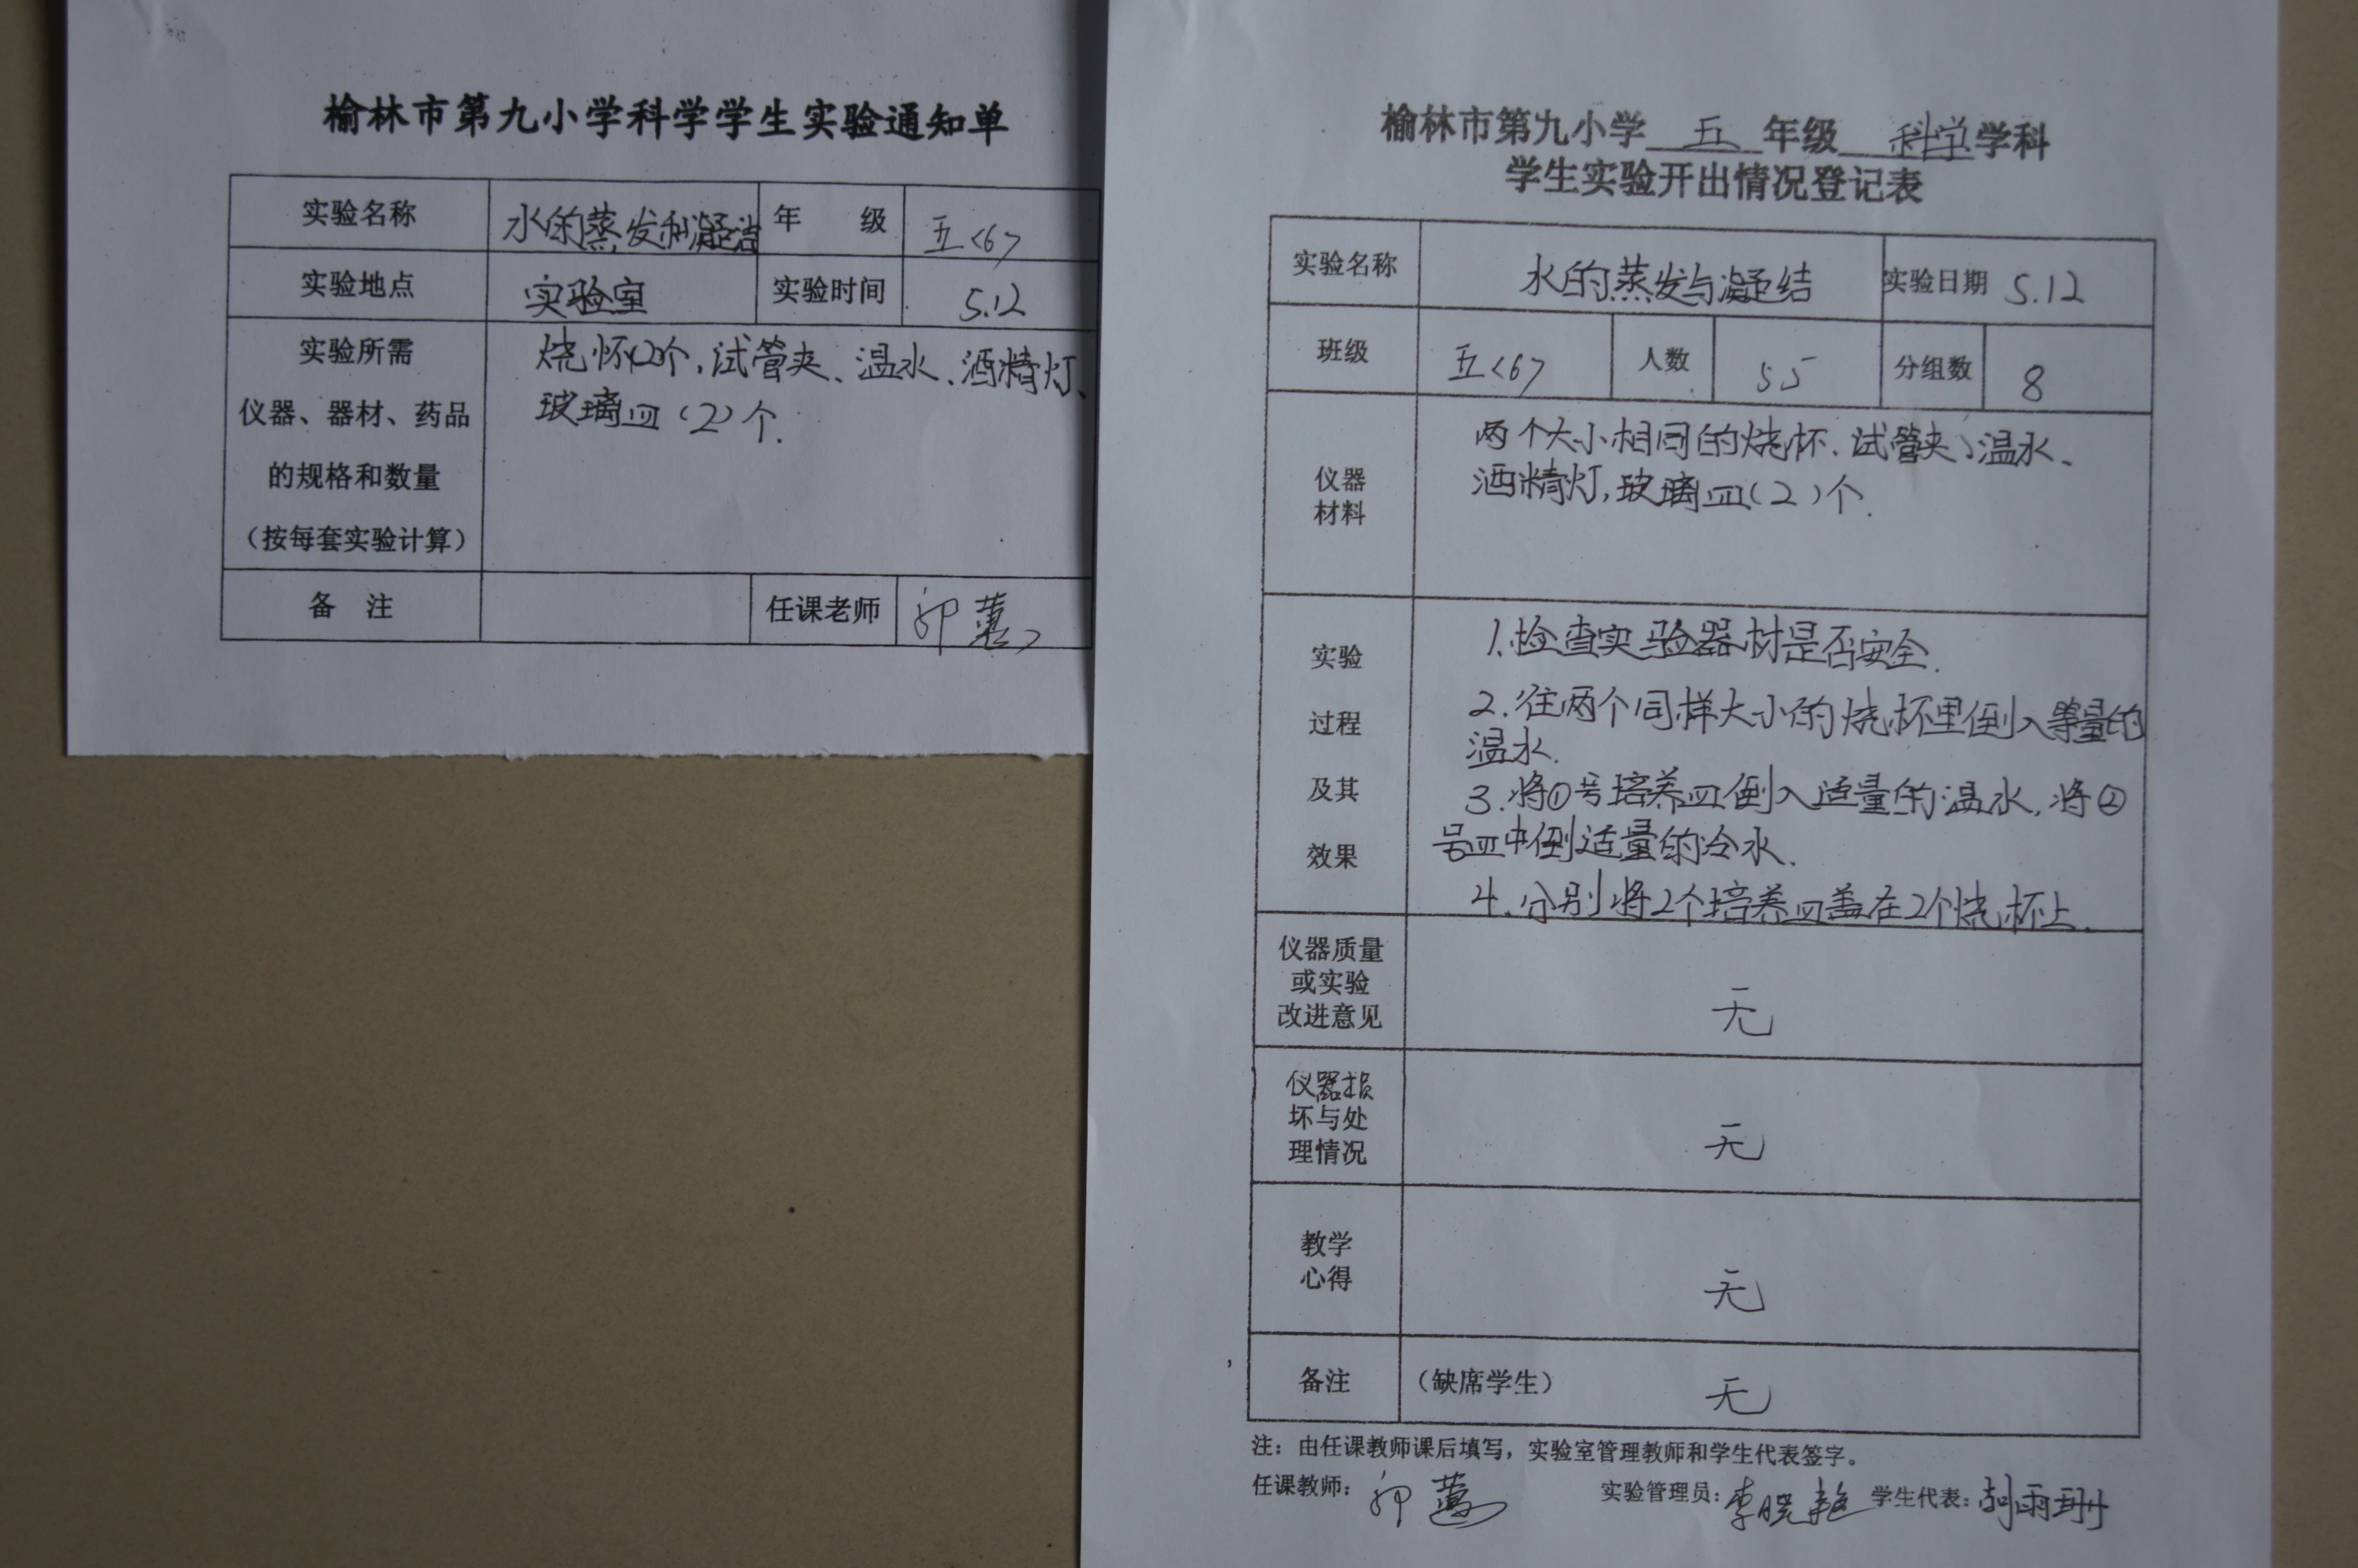 榆林市第九小学科学学生实验通知单
实验名称 水的蒸发和凝结 年 级 五<6>
实验地点 实验室 实验时间 5.12
实验所需
仪器、器材、药品
的规格和数量
(按每套实验计算)
烧怀(2)个,试管夹、温水、酒精灯、
玻璃皿(2)个.
备 注 任课老师
榆林市第九小学 五 年级 科学 学科
学生实验开出情况登记表
实验名称 水的蒸发与凝结 实验日期 5.12
班级 五<6> 人数 55 分组数 8
仪器
材料
两个大小相同的烧杯、试管夹、温水、
酒精灯,玻璃皿(2)个.
实验
过程
及其
效果
1.检查实验器材是否安全.
2.往两个同样大小的烧杯里倒入等量的
温水.
3.将①号培养皿倒入适量的温水,将②
号皿中倒适量的冷水.
4.分别将2个培养皿盖在2个烧杯上.
仪器质量
或实验
改进意见
无
仪器损
坏与处
理情况
无
教学
心得
无
备注 (缺席学生) 无
注:由任课教师课后填写,实验室管理教师和学生代表签字。
任课教师: 实验管理员:李晓艳 学生代表:胡雨珊